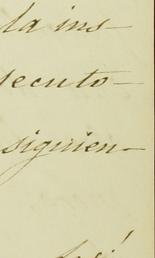 la ins-
secuto-
siguien-